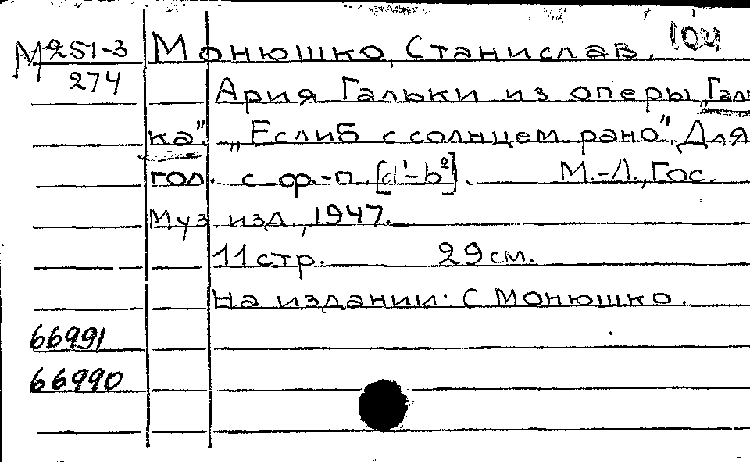 М251-3 Монюшко, Станислав. 104
274
Ария Гальки из оперы „Галь
ка". „Еслиб с солнцем рано". Для
гол. с ф.-п. [d¹-b²]. М.-Л., Гос.
Муз изд., 1947.
11 стр. 29 см.
На издании: С Монюшко.
66991
66990